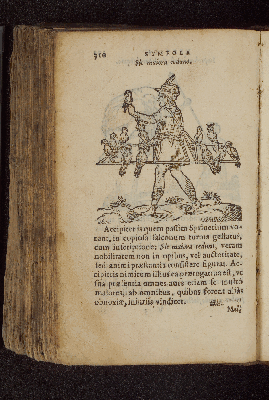 SYMBOLA
Sic maiora cedunt.
Accipiter is quem passim Sprinctium vo-
cant, in copiosa falconum turma gestatus,
cum inscriptione; Sic maiora cedunt, veram
nobilitatem non in opibus, vel auctoritate,
sed animi præstantia consistere figurat. Ac-
cipitris nimirum illius ea prærogatiua est, vt
sua præsentia omnes aues etiam se multo
maiores, ab omnibus, quibus forent aliàs
obnoxiæ, iniuriis vindicet.